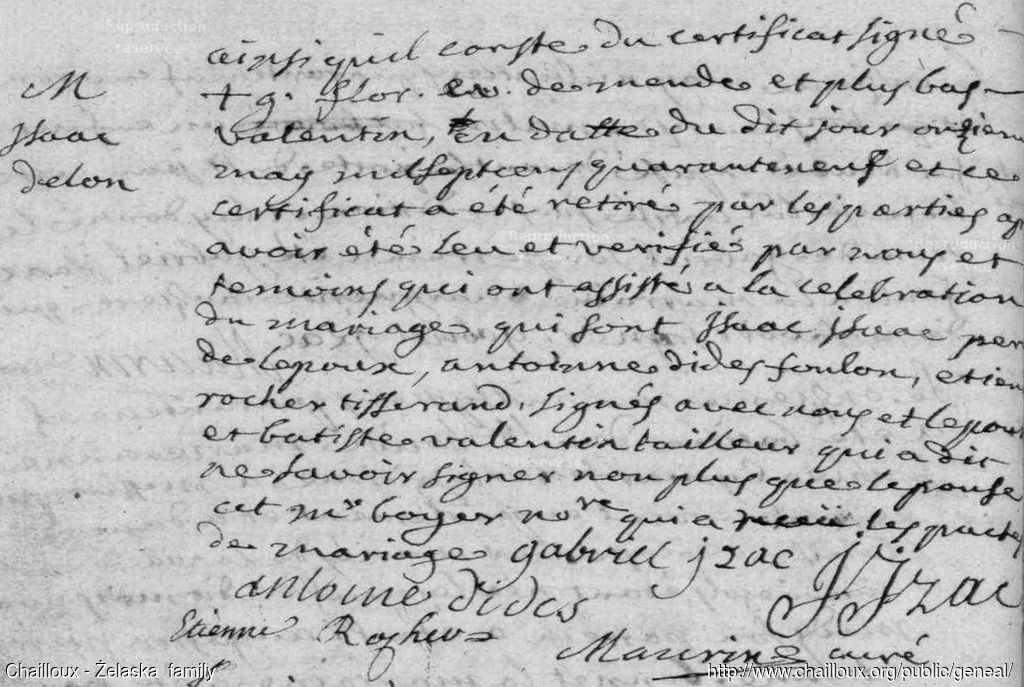 ainsi quil conste du certificat signé
+ g. flor. ev. de mende et plus bas
valentin, en datte du dit jour onziem
may milsept cens quaranteneuf et ce
certificat a été retiré par les parties ap
avoir été leu et verifié par nous et
temoins qui ont assisté a la celebration
du mariage qui sont jsaac jsaac per
de lepoux, antoinne dides foulon, etien
rocher tisserand, signés avec nous et lepou
et batiste valentin tailleur qui a dit
ne savoir signer non plus que lepouse
cet mr boyer nore qui a receu les pactes
de mariage gabriel jzac JJzac
antoine dides
Etienne Rocher
Maurin curé
M
jsaac
delon
Reproduction
reservée
Chailloux - Żelaska family
http://www.chailloux.org/public/geneal/